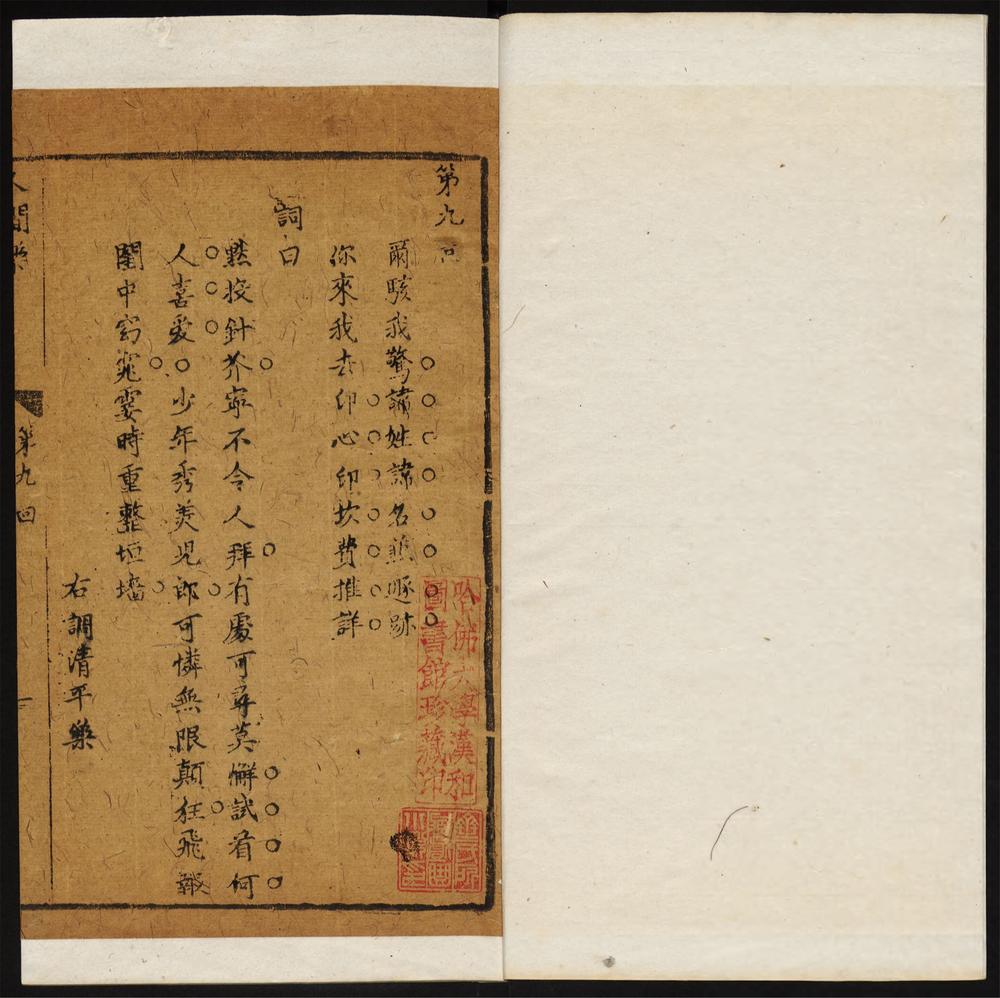 第九回
爾駭我驚諱姓諱名蹤跡
你來我去印心印坎費推詳
詞曰
黙投針芥寧不令人拜有處可尋莫懈試看何
人喜愛○少年秀美児郎可憐無限顛狂飛報
閨中窈窕霎時重整垣墻
右調清平樂
人間樂
第九回
一
哈佛大學漢和
圖書館珍藏印